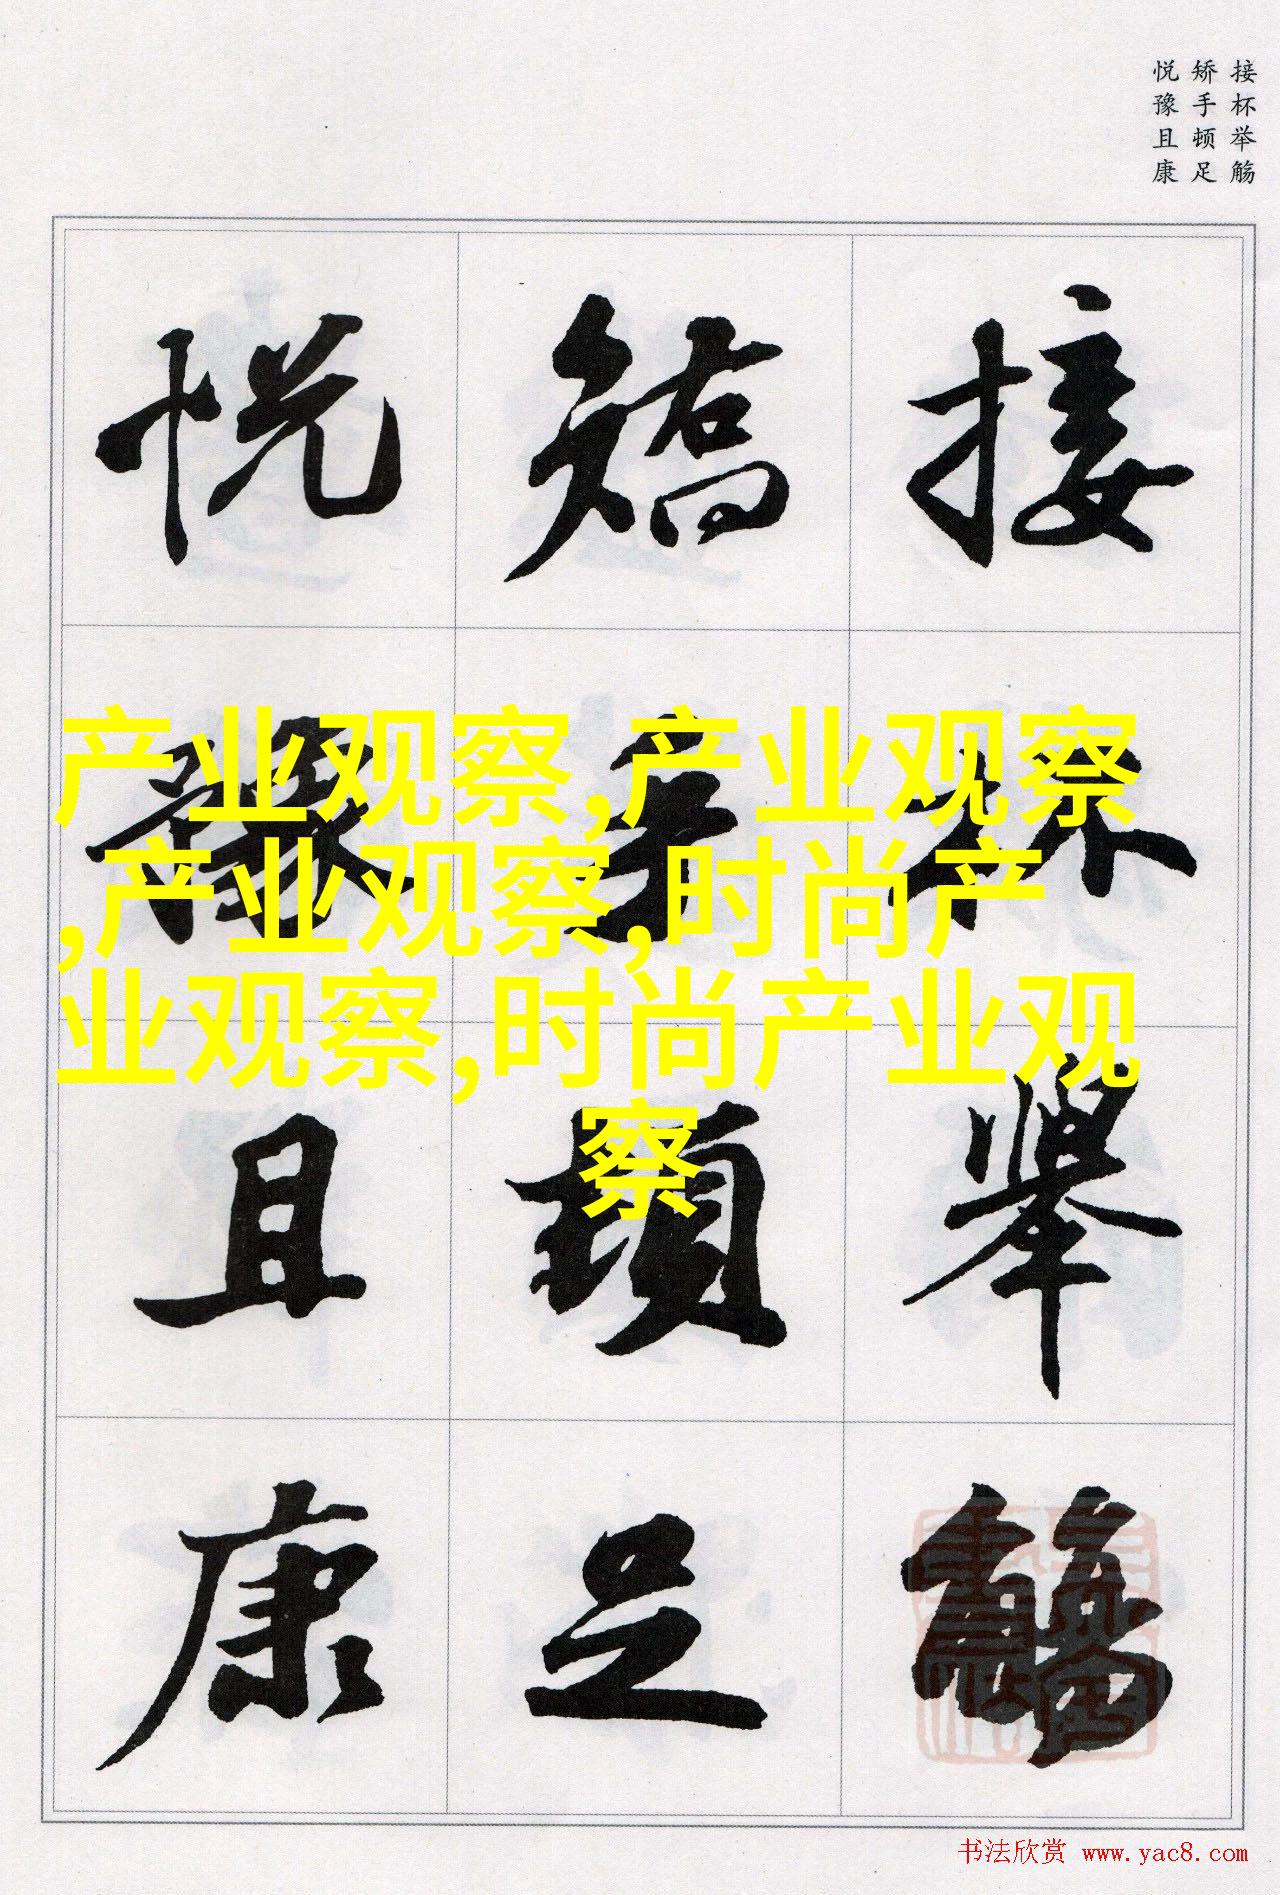 接杯举觞
矫手顿足
悦豫且康
接杯举觞
矫手顿足
悦豫且康
产业观察,产业观察
,产业观察,时尚产
业观察,时尚产业观
察
书法欣赏 www.yac8.com